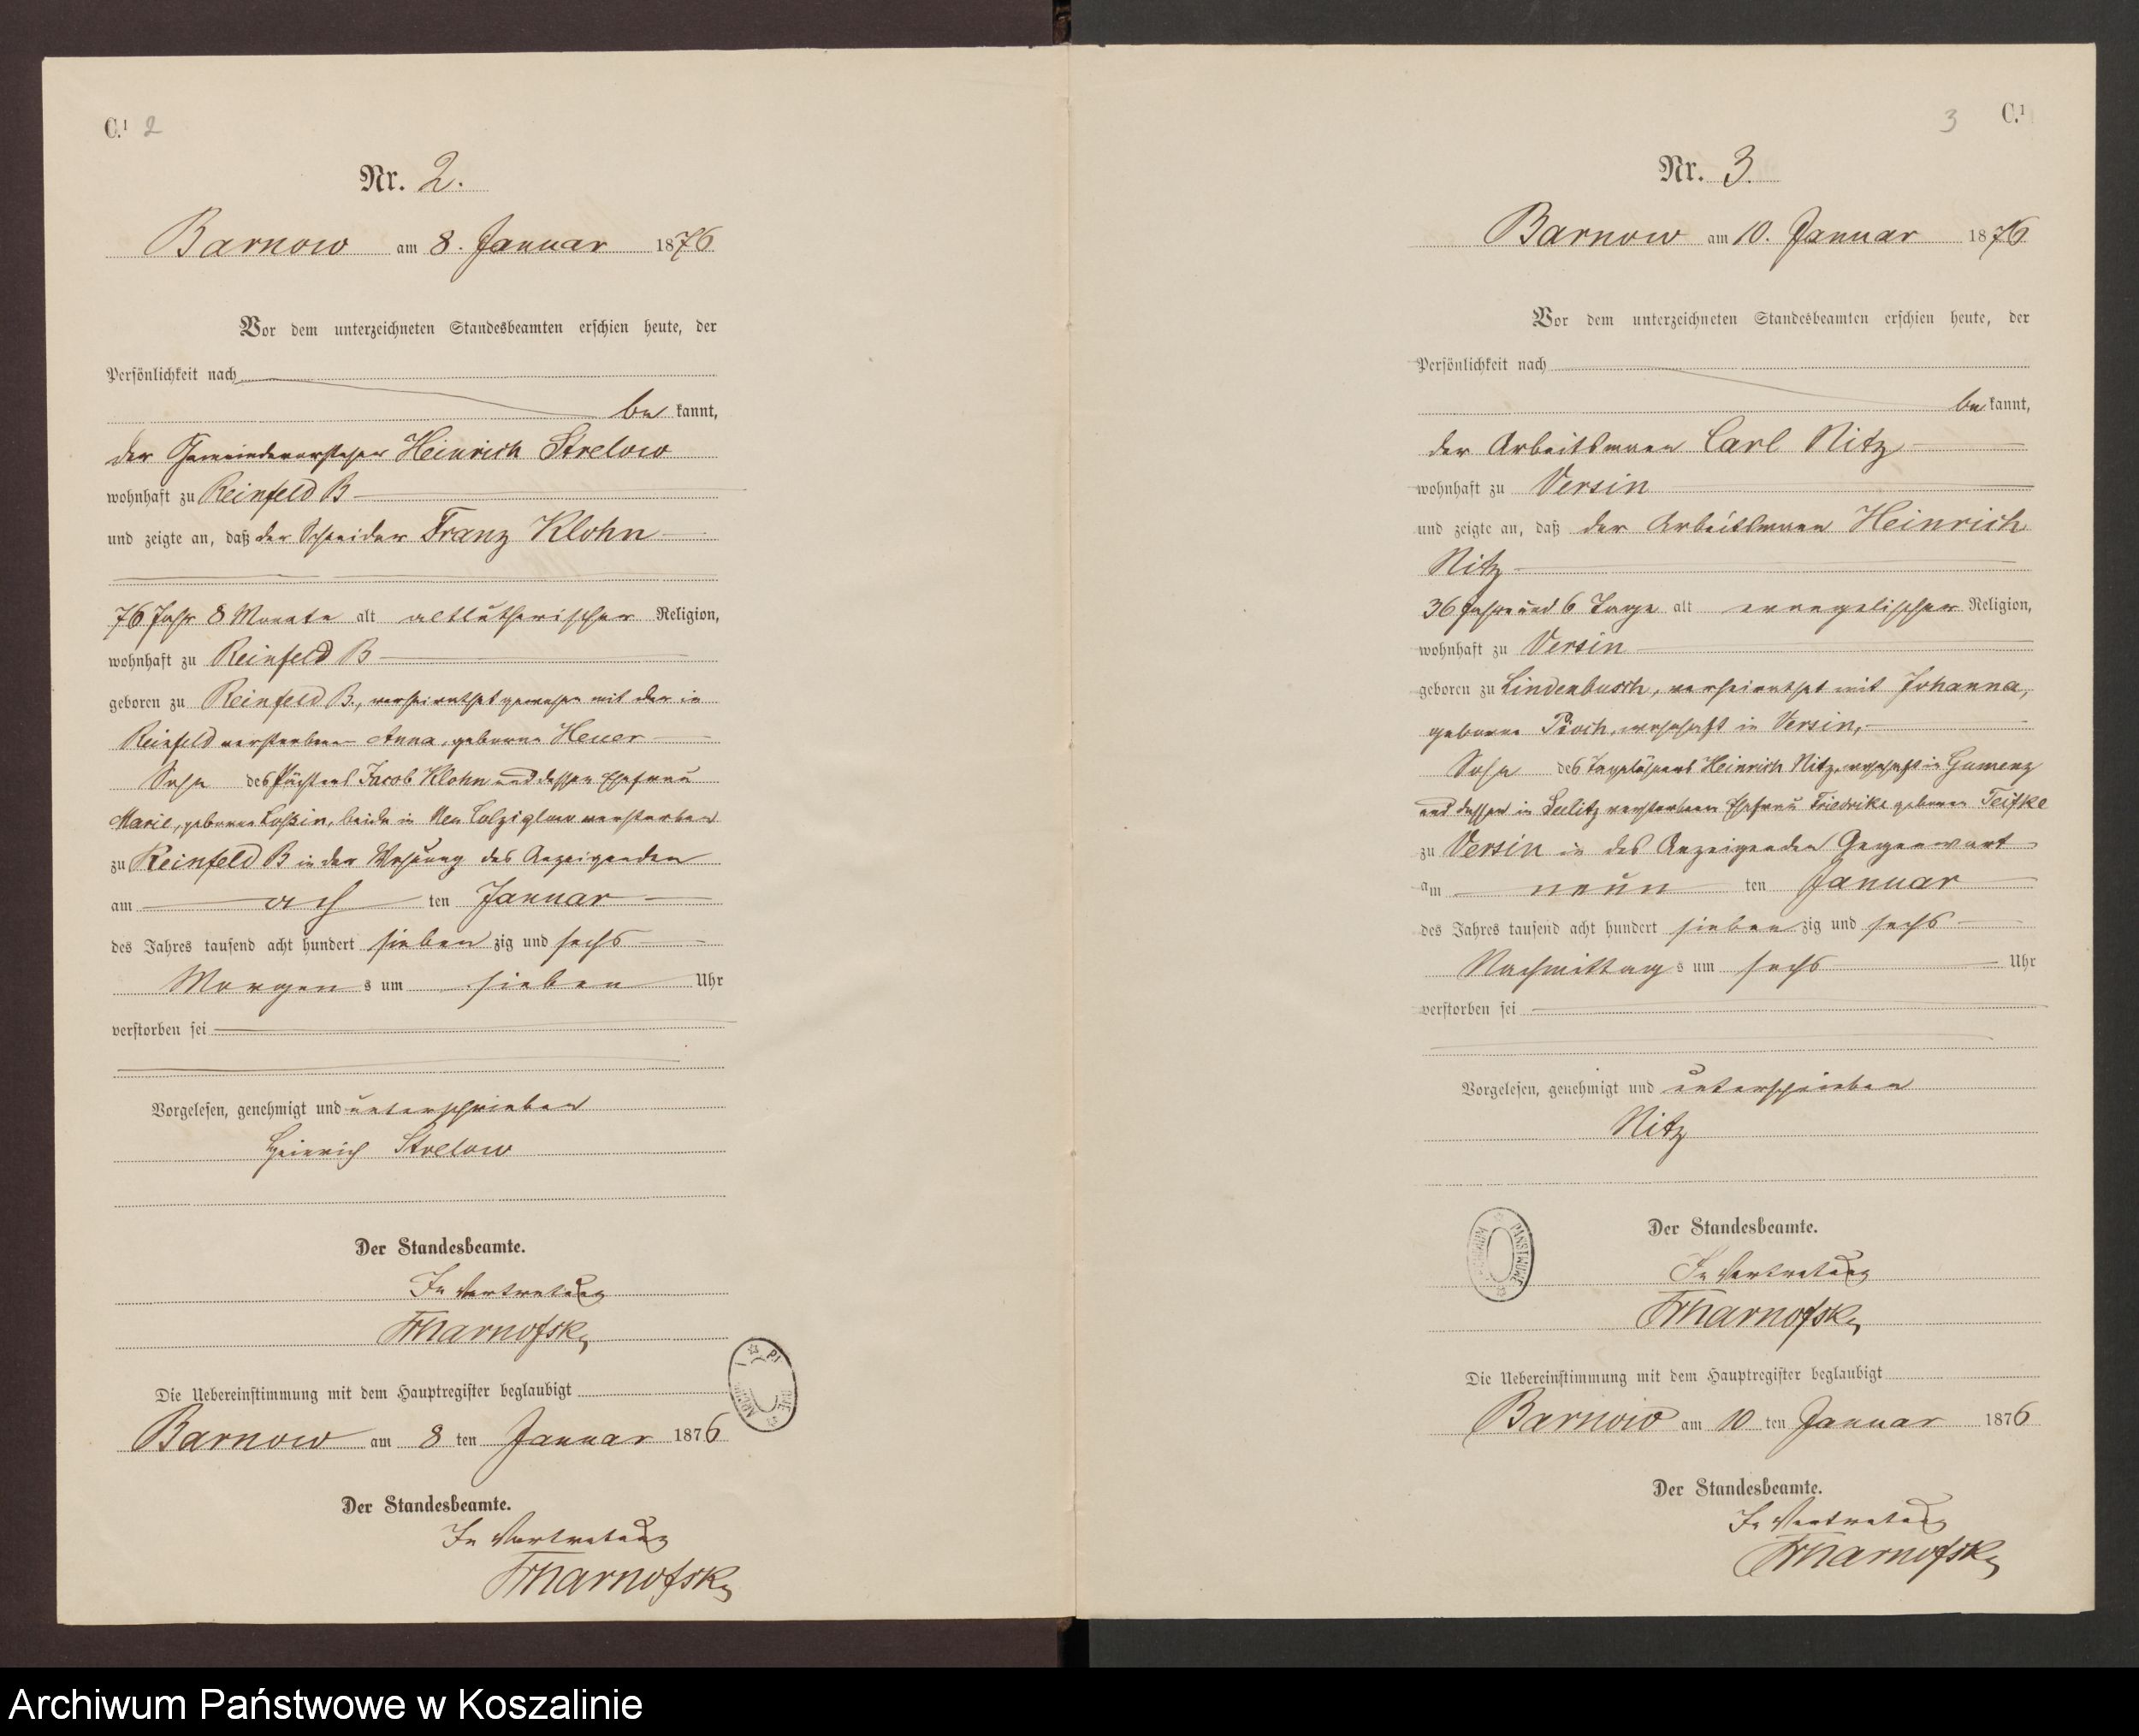 C.¹ 2
Nr. 2.
Barnow am 8. Januar 1876
Vor dem unterzeichneten Standesbeamten erschien heute, der
Persönlichkeit nach
be kannt,
der Gemeindevorsteher Heinrich Strelow
wohnhaft zu Reinfeld B
und zeigte an, daß der Schneider Franz Klohn
76 Jahr 8 Monate alt altlutherischer Religion,
wohnhaft zu Reinfeld B
geboren zu Reinfeld B., verheirathet gewesen mit der in
Reinfeld verstorbenen Anna, geborene Heuer
Sohn des Pächters Jacob Klohn und dessen Ehefrau
Marie, geborene Loßin, beide in Neu Colziglow verstorben
zu Reinfeld B in der Wohnung des Anzeigenden
am ach ten Januar
des Jahres tausend acht hundert sieben zig und sechs
Morgen s um sieben Uhr
verstorben sei
Vorgelesen, genehmigt und unterschrieben
Heinrich Strelow
Der Standesbeamte.
In Vertretung
Die Uebereinstimmung mit dem Hauptregister beglaubigt
Barnow am 8 ten Januar 1876
Der Standesbeamte.
In Vertretung
3 C.¹
Nr. 3.
Barnow am 10. Januar 1876
Vor dem unterzeichneten Standesbeamten erschien heute, der
Persönlichkeit nach
be kannt,
der Arbeitsmann Carl Nitz
wohnhaft zu Versin
und zeigte an, daß der Arbeitsmann Heinrich
Nitz
36 Jahre und 6 Tage alt evangelischer Religion,
wohnhaft zu Versin
geboren zu Lindenbusch, verheirathet mit Johanna,
geborene Pioch, wohnhaft in Versin,
Sohn des Tagelöhners Heinrich Nitz, wohnhaft in Gumenz
und dessen in Sellitz verstorbenen Ehefrau Friedrike geborene Teifke
zu Versin in des Anzeigenden Gegenwart
am neun ten Januar
des Jahres tausend acht hundert sieben zig und sechs
Nachmittag s um sechs Uhr
verstorben sei
Vorgelesen, genehmigt und unterschrieben
Nitz
PAŃSTWOWE
Der Standesbeamte.
In Vertretung
Die Uebereinstimmung mit dem Hauptregister beglaubigt
Barnow am 10 ten Januar 1876
Der Standesbeamte.
In Vertretung
Archiwum Państwowe w Koszalinie